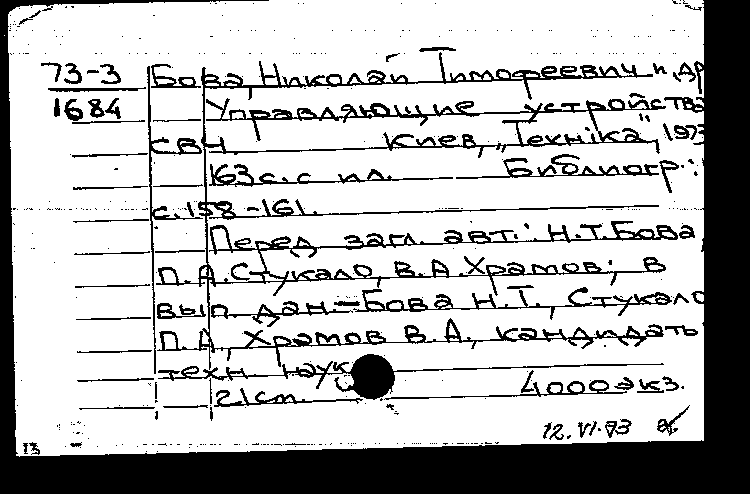 73-3 Бова, Николай Тимофеевич и др
1684 Управляющие устройства
СВЧ. Киев, „Технiка", 1973
163 с. с ил. Библиогр.:
с. 158-161.
Перед загл. авт.: Н.Т. Бова,
П.А. Стукало, В.А. Храмов; в
вып. дан.-Бова Н.Т., Стукало
П.А., Храмов В.А., кандидаты
техн. наук
21 cm. 4000 экз.
12.VI.73
13